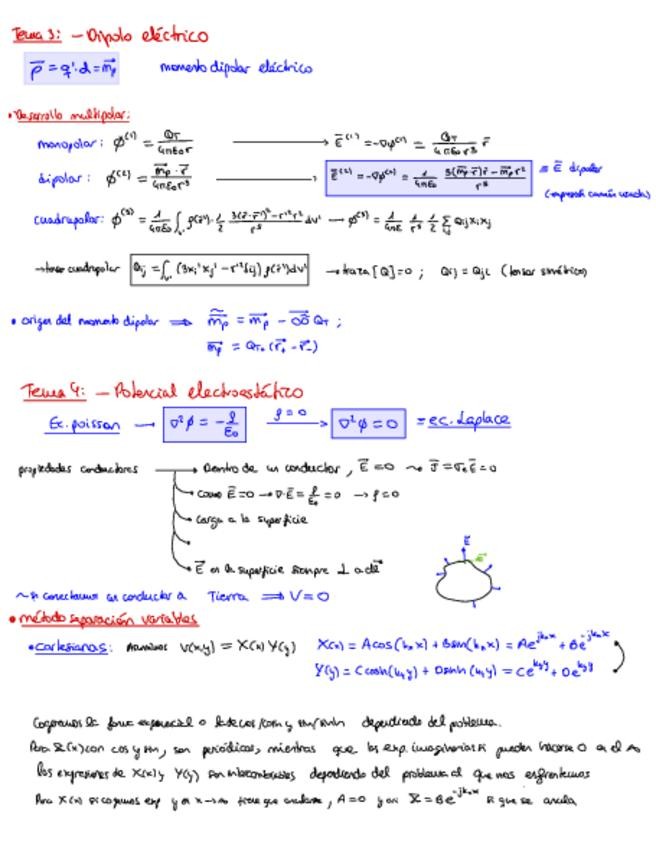 Tema 3: - Dipolo eléctrico
p⃗ = q·d = m⃗p momento dipolar eléctrico
• Desarrollo multipolar:
monopolar: ϕ⁽¹⁾ = QT/4πε₀r → E⃗⁽¹⁾ = -∇ϕ⁽¹⁾ = QT/4πε₀r³ r⃗
dipolar: ϕ⁽²⁾ = m⃗p·r⃗/4πε₀r³ → E⃗⁽²⁾ = -∇ϕ⁽²⁾ = 1/4πε₀ 3(m⃗p·r⃗)r⃗ - m⃗p r²/r⁵ ≡ E⃗ dipolar
(expresión común usada)
cuadrupolar: ϕ⁽³⁾ = 1/4πε₀ ∫ ρ(r⃗') · 1/2 3(r⃗·r⃗')² - r'²r²/r⁵ dv' → ϕ⁽³⁾ = 1/4πε 1/r⁵ 1/2 Σ Qij xi xj
→ tensor cuadrupolar Qij = ∫ (3xi'xj' - r'²δij) ρ(r⃗')dv' → traza [Q] = 0 ; Qij = Qji (tensor simétrico)
• origen del momento dipolar ⟹ m̃p = m⃗p - OO QT ;
m⃗p = QT+ (r⃗+ - r⃗-)
Tema 4: - Potencial electroestático
Ec. poisson → ∇²ϕ = -ρ/ε₀ ρ=0 → ∇²ϕ = 0 = ec. Laplace
propiedades conductores → Dentro de un conductor, E⃗ = 0 ~ J⃗ = σ·E⃗ = 0
Como E⃗ = 0 → ∇·E⃗ = ρ/ε₀ = 0 → ρ = 0
Carga a la superficie
E⃗
E⃗ en la superficie siempre ⊥ a
~ si conectamos un conductor a Tierra ⟹ V = 0
• método separación variables
• cartesianas: Asumimos V(x,y) = X(x) Y(y) X(x) = A cos(kₙx) + B sin(kₙx) = Ae^jkₙx + Be^-jkₙx
Y(y) = C cosh(kₙy) + D sinh(kₙy) = Ce^kₙy + De^-kₙy
Cogeremos la forma exponencial o la de cos/cosh y sin/sinh dependiendo del problema.
Para X(x) con cos y sin, son periódicas, mientras que las exp. imaginarias si pueden hacerse 0 en el ∞
las expresiones de X(x) y Y(y) son intercambiables dependiendo del problema al que nos enfrentemos
Para X(x) si cogemos exp y en x→∞ tiene que anularse, A=0 y en X = Be^-jkₙx si que se anula